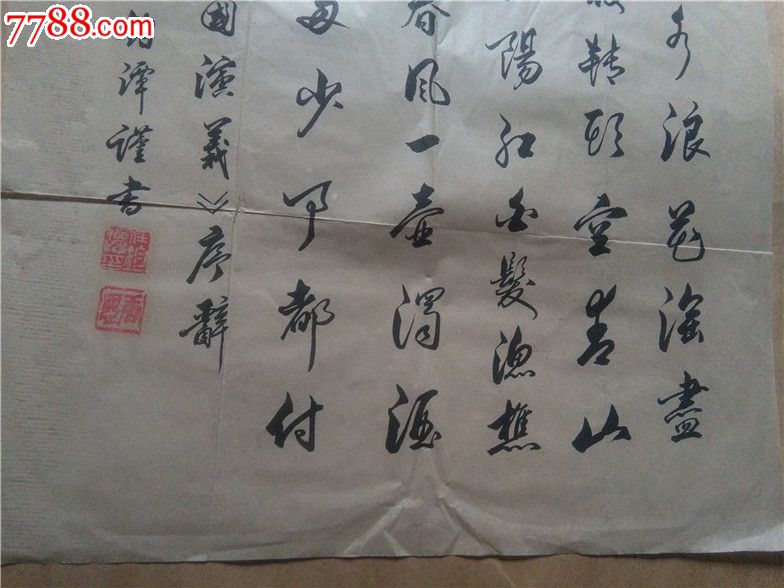 7788.com
中国收藏热线
水浪花淘盡
敗轉頭空青山
陽紅白髮漁樵
春风一壺濁酒
多少事都付
國演義》序辭
譚謹書